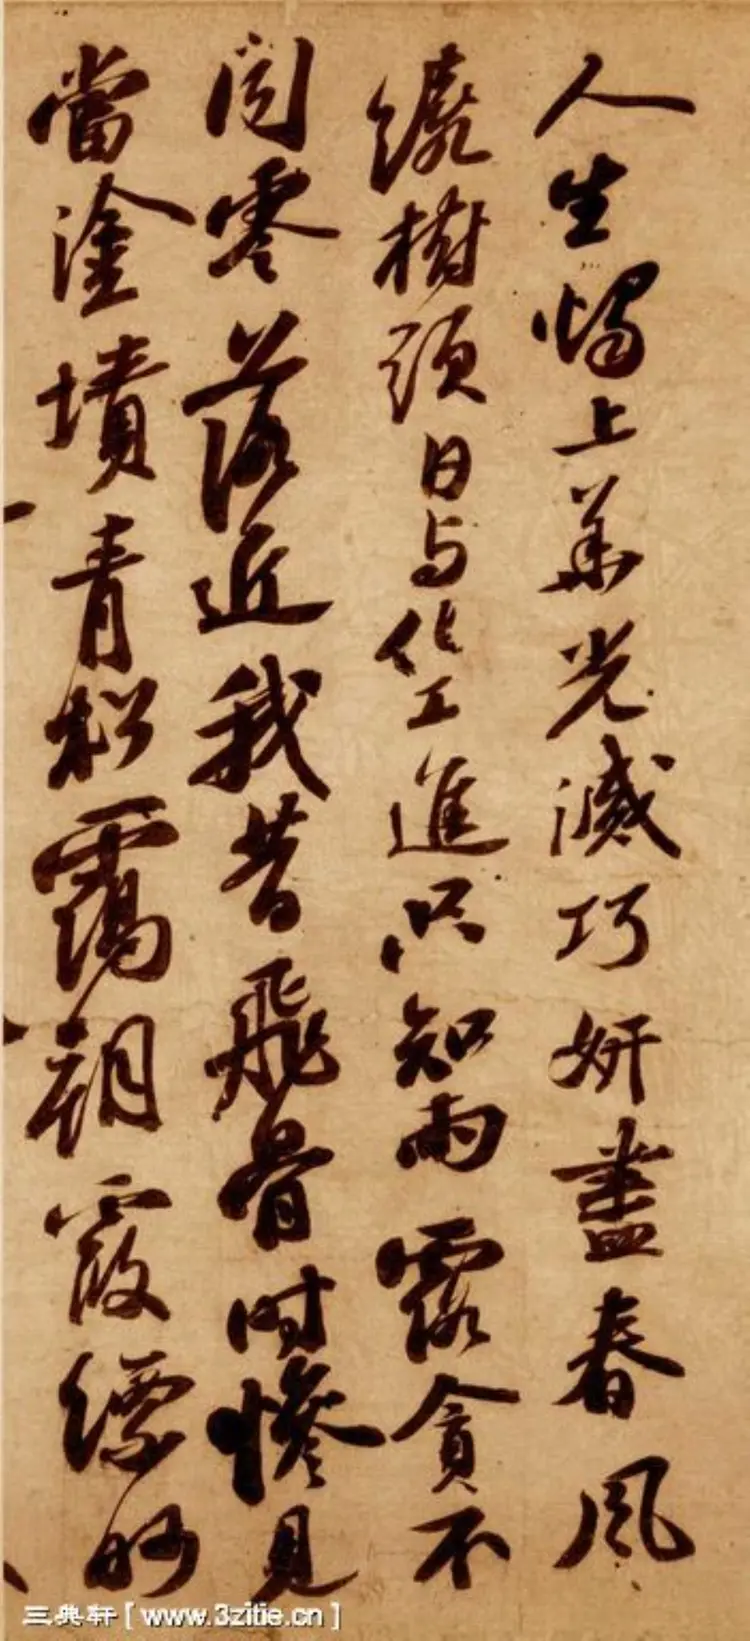 人生燭上華光滅巧妍盡春風
繞樹頭日与化工進只知雨露貪不
聞零落近我昔飛骨時慘見
當塗墳青松靄朝霞縹眇
三典轩[www.3zitie.cn]